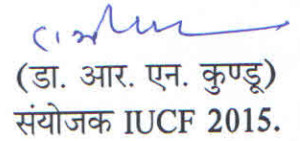 (डा. आर. एन. कुण्डू)
संयोजक IUCF 2015.